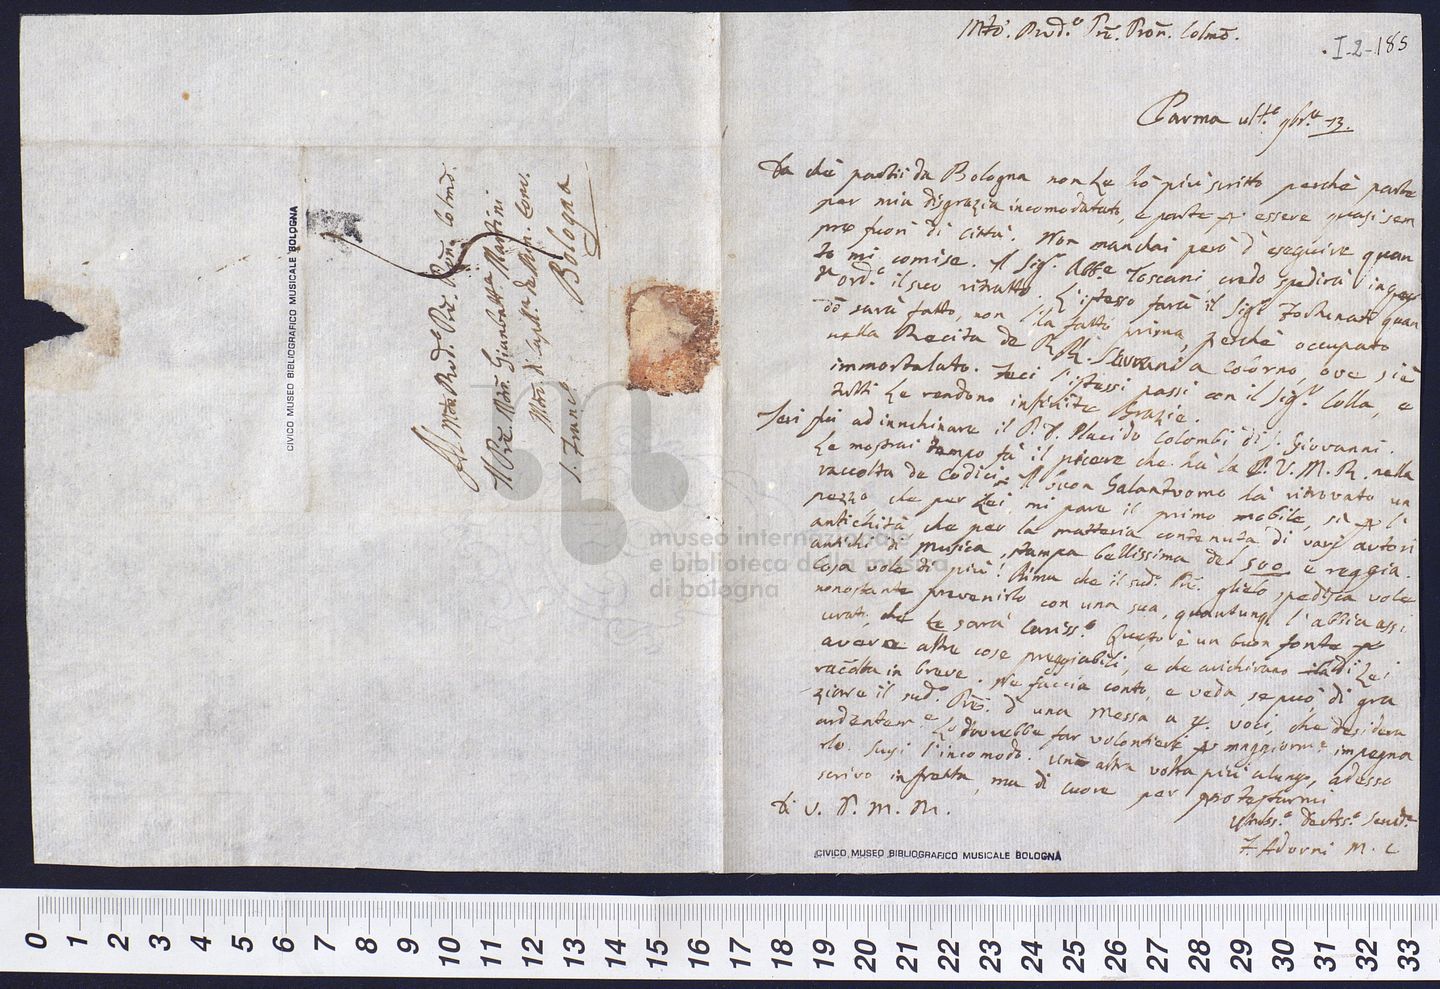 Mto. Rnd.o Pre. Pron. Colmo.
I-2-185
Parma ult.o 9bre. 73.
Da chè partii da Bologna non Le hò più scritto perchè parte
per mia disgrazia incomodatato, e parte per essere quasi sem
pre fuori di città. Non mancai però d'eseguire quan
to mi comise. Il Sig.r Abb.e Toscani credo spedirà in
ord.e il suo ritratto. L'istesso farà il Sig.r quan
do sarà fatto, non l'ha fatto prima, perchè occupato
nella Recita de RR. Sovrani a Colorno, ove si è
immortalato. Feci l'istessi passi con il Sig.r Colla, e
tutti Le rendono infinite Grazie.
Ieri fui ad innchinare il P. D. Placido Colombi di S. Giovanni.
Le mostrai tempo fà il piacere che hà la P. V. M. R. nella
raccolta de Codici. Il buon Galantuomo hà ritrovato un
pezzo, che per Lei mi pare il primo mobile, sì per l'
antichità che per la matteria contenuta di varj autori
antichi di Musica, stampa bellissima del 500 e reggia.
Cosa vole di più! Prima che il sud.o Pre. glielo spedisca vole
nonostante prevenirlo con una sua, quantunq. l'abbia assi
urati, che Le sarà Cariss.o Questo è un buon fonte per
avere altre cose preggiabili, e che arichirano di Lei
racolta in breve. Ne faccia conto, e veda, se può, di gra
ziare il sud.o Pre. d'una Messa a 4. voci, che desidera
ardentem.e Lo dovrebbe far volontieri per maggiorm.e impegna
rlo. Scusi l'incomodo. Una altra volta più a lungo, adesso
scrivo in fretta, ma di cuore per protestarmi
Di V. P. M. R.
Umiliss.o Devotss.o Servd.e
F. Adorni M. C.
Al Mto. Rnd.o Pre. Pron. Colmo.
Il Pre. Mro. Giambatta Martini
Mro. di Capla. de Min. Conv.
S. Franco.
Bologna
CIVICO MUSEO BIBLIOGRAFICO MUSICALE BOLOGNA
CIVICO MUSEO BIBLIOGRAFICO MUSICALE BOLOGNA
museo internazionale
e biblioteca della musica
di bologna
0 1 2 3 4 5 6 7 8 9 10 11 12 13 14 15 16 17 18 19 20 21 22 23 24 25 26 27 28 29 30 31 32 33